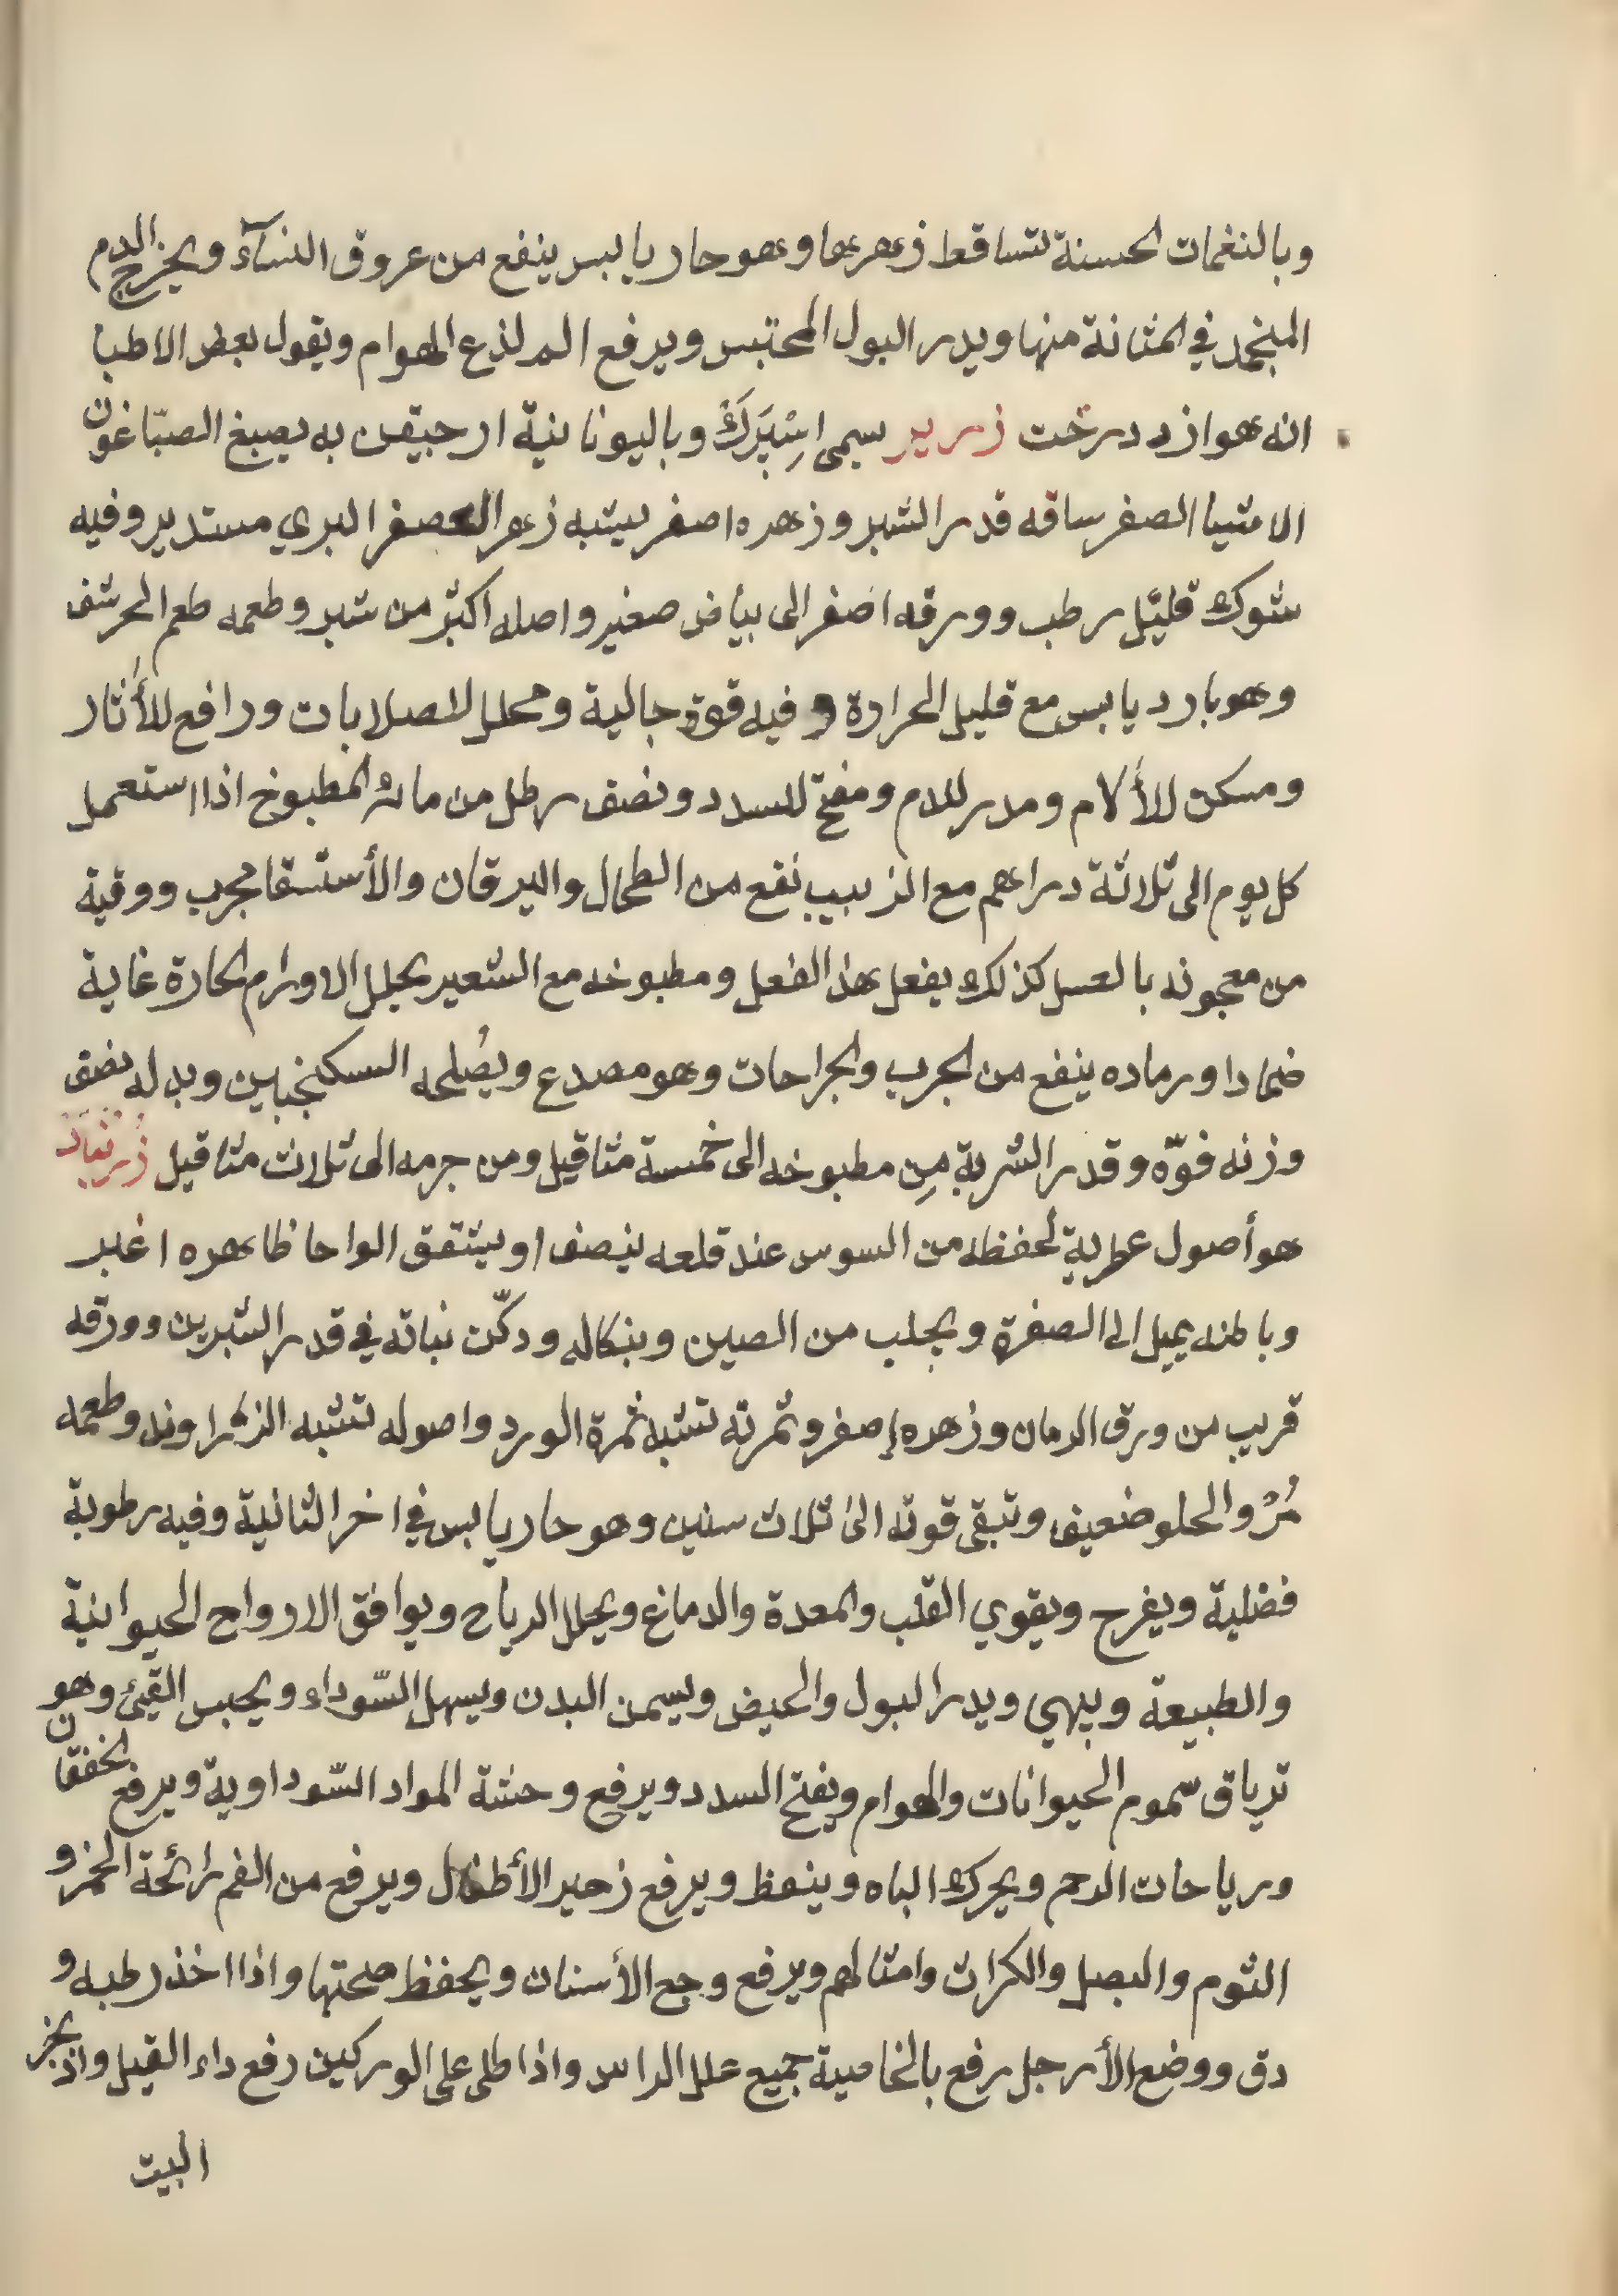 وبالنغمات الحسنة تتساقط زهرها وهو حار يابس ينفع من عروق النسآء ويخرج الدم
المنجمد في المثانة منها ويدر البول المحتبس ويرفع الم لذع الهوام ويقول بعض الاطبا
انه هو ازاد درخت زرير يسمى اِسْپَرَكْ وباليونانية ارجيقن به يصبغ الصبّاغون
الاشيا الصفر ساقه قدر الشبر وزهره اصفر يشبه زهر العصفر البري مستدير وفيه
شوك قليل رطب وورقه اصفر الى بياض صغير واصله اكثر من شبر وطعمه طعم الحرشف
وهو بارد يابس مع قليل الحرارة وفيه قوة جالية ومحلل للصلابات ورافع للأثار
ومسكن للألام ومدر للدم ومفتح للسدد ونصف رطل من مائه المطبوخ اذا استعمل
كل يوم الى ثلاثة دراهم مع الزبيب نفع من الطحال واليرقان والأستسقا مجرب ووقية
من معجونه بالعسل كذلك يفعل هذا الفعل ومطبوخه مع الشعير يحلل الاورام الحارة غاية
ضمادا ورماده ينفع من الجرب والجراحات وهو مصدع ويصُلحه السكنجبين وبدله نصف
وزنه فوّه وقدر الشربة مِن مطبوخه الى خمسة مثاقيل ومن جرمه الى ثلاث مثاقيل زُرنبَادْ
هو أصول عطرية لحفظه من السوس عند قلعه ينصف او يشقق الواحا ظاهره اغبر
وباطنه يميل الى الصفرة ويجلب من الصين وبنكاله ودكّن نباته في قدر الشبرين وورقه
قريب من ورق الرمان وزهره اصفر وثمرته تشبه ثمرة الورد واصوله تشبه الزراوند وطعمه
مُرّ والحلو ضعيف وتبقى قوته الى ثلاث سنين وهو حار يابس في اخر الثانية وفيه رطوبة
فضلية ويفرح ويقوي القلب والمعدة والدماغ ويحلل الرياح ويوافق الارواح الحيوانية
والطبيعة ويبهي ويدر البول والحيض ويسمن البدن ويسهل السّوداء ويحبس القيئ وهو
ترياق سموم الحيوانات والهوام ويفتح السدد ويرفع وحشة المواد السّوداوية ويرفع الخفقان
ورياحات الرحم ويحرك الباه وينعظ ويرفع زحير الأطفال ويرفع من الفم رائحة الخمر و
الثوم والبصل والكراث وامثالهم ويرفع وجع الأسنان ويحفظ صحتها واذا اخذ رطبه و
دق ووضع الأرجل رفع بالخاصية جميع علل الراس واذا طلى على الوركين رفع داء الفيل واذا بخر
البيت